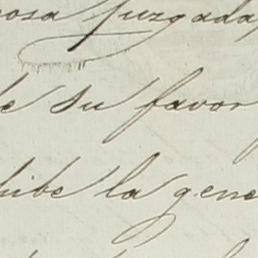 cosa juzgada,
de su favor
hibe la gene